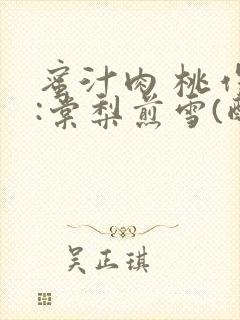 蜜汁肉桃作
:棠梨煎雪(酥
吴正琪